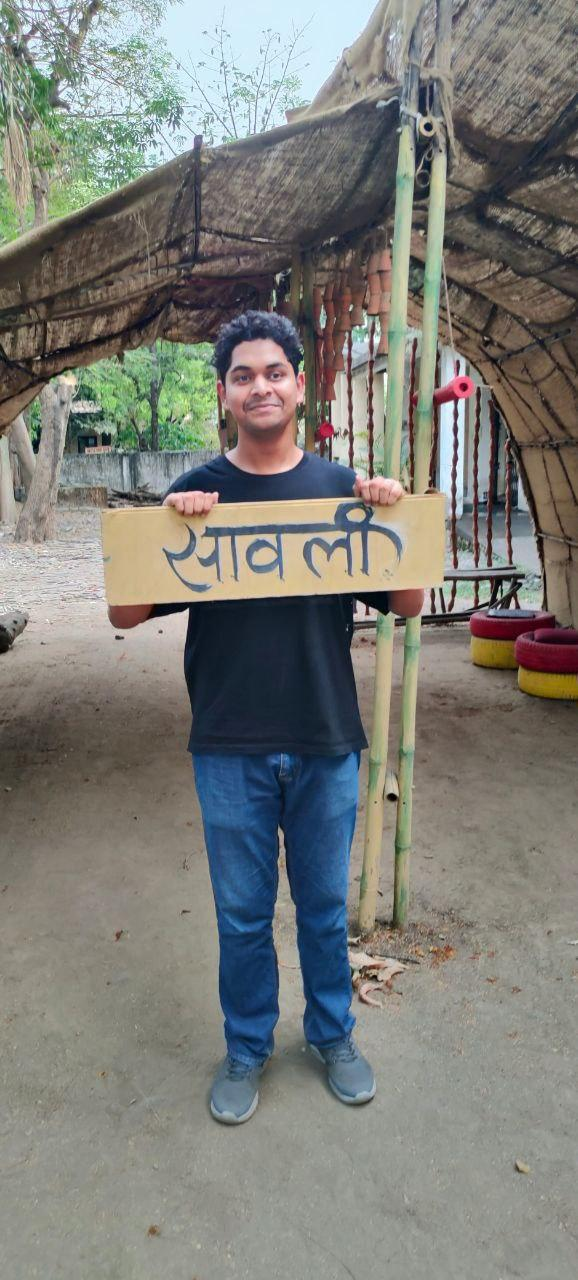 सावली